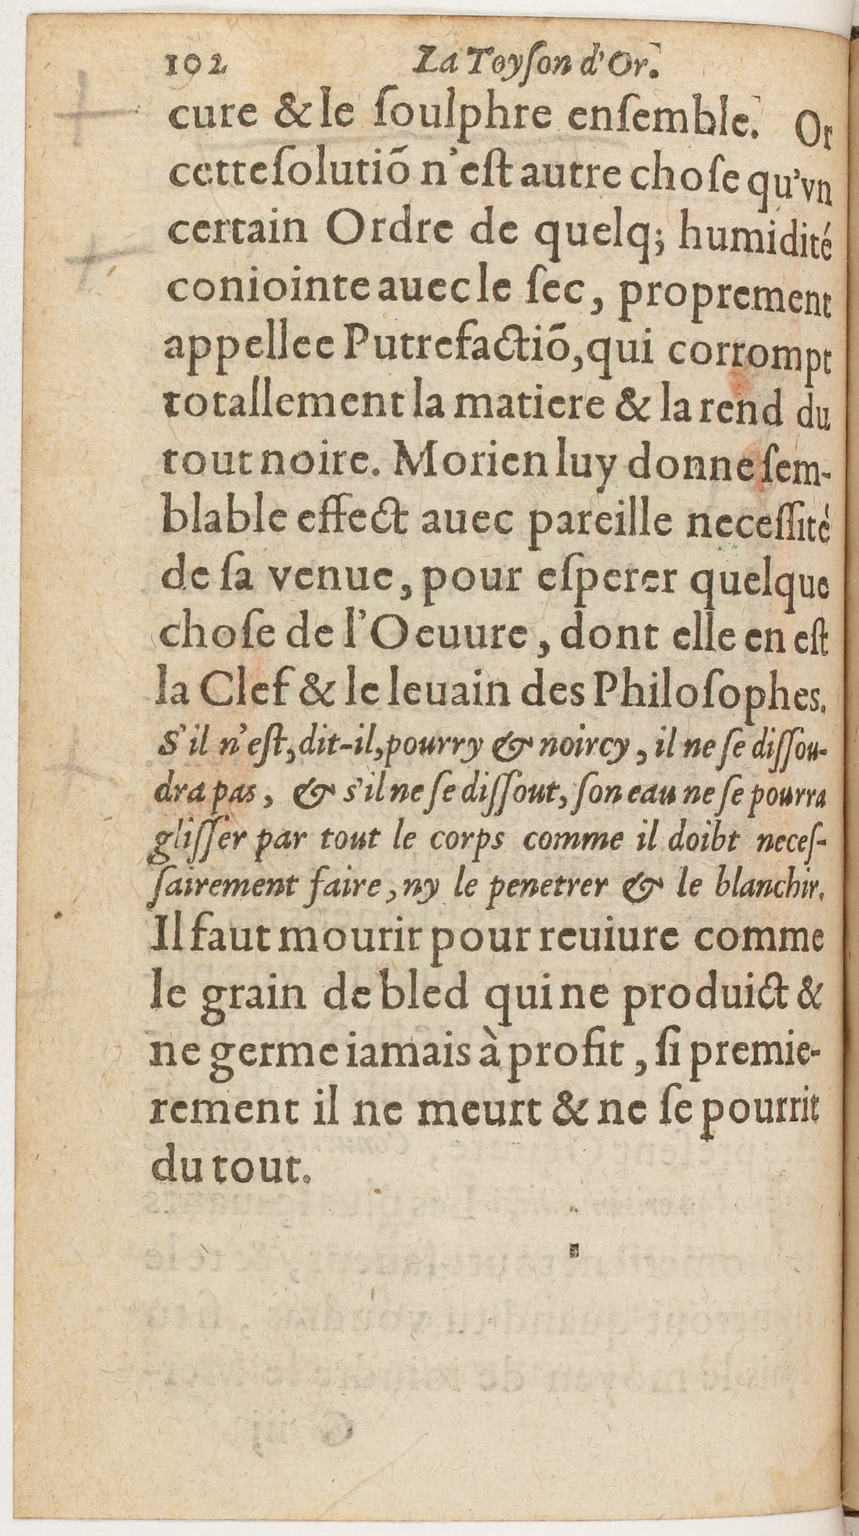 102 La Toyſon d'Or.
cure & le ſoulphre enſemble. Or
cette ſolutiõ n'eſt autre choſe qu'vn
certain Ordre de quelq; humidité
coniointe auec le ſec, proprement
appellee Putrefactiõ, qui corrompt
totallement la matiere & la rend du
tout noire. Morien luy donne ſem-
blable effect auec pareille neceſſité
de ſa venue, pour eſperer quelque
choſe de l'Oeuure, dont elle en eſt
la Clef & le leuain des Philoſophes.
S'il n'eſt, dit-il, pourry & noircy, il ne ſe diſſou-
dra pas, & s'il ne ſe diſſout, ſon eau ne ſe pourra
gliſſer par tout le corps comme il doibt neceſ-
ſairement faire, ny le penetrer & le blanchir.
Il faut mourir pour reuiure comme
le grain de bled qui ne produict &
ne germe iamais à profit, ſi premie-
rement il ne meurt & ne ſe pourrit
du tout.